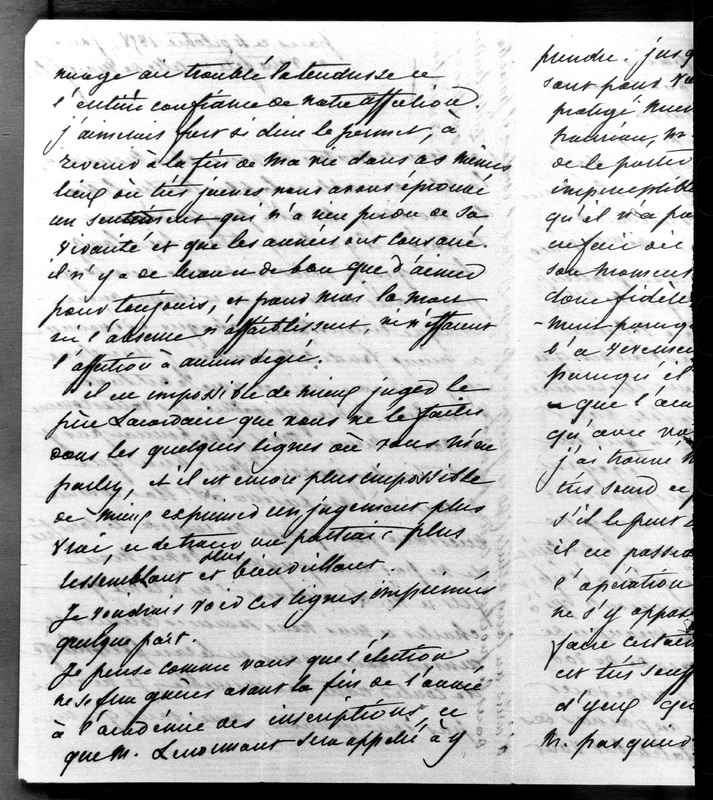 nuage ait troublé la tendresse et
l'entière confiance de notre affection.
j'aimerais fort si dieu le permet, à
revenir à la fin de ma vie dans ces mêmes
lieux où très jeunes nous avons éprouvé
un sentiment qui n'a rien perdu de sa
vivacité et que les années ont consacré.
il n'y a de beau et de bon que d'aimer
pour toujours, et quand mais la mort
ni l'absence n'affaiblissent, ni n'effacent
l'affection à aucun degré.
il est impossible de mieux juger le
père Lacordaire que vous ne le faites
dans les quelques lignes où vous m'en
parlez, et il est encore plus impossible
de mieux exprimer un jugement plus
vrai, et de tracer un portrait plus
ressemblant et plus bienveillant.
Je voudrais voir ces lignes imprimées
quelque part.
Je pense comme vous que l'élection
ne se fera guères avant la fin de l'année
à l'académie des inscriptions, et
que M. Lenormant sera appelé à y
prendre. jusq
sont pour
protégé
de le
imperceptible
qu'il n'a pa
son moment
donc fidèle
-ment pourq
l'a
pourqu'il
que l'aca
qu'avec vo
j'ai trouvé
très sourd et
s'il le peut
il est passio
l'opération
ne s'y oppos
faire
est très souff
d'yeux qu
M. pasquier